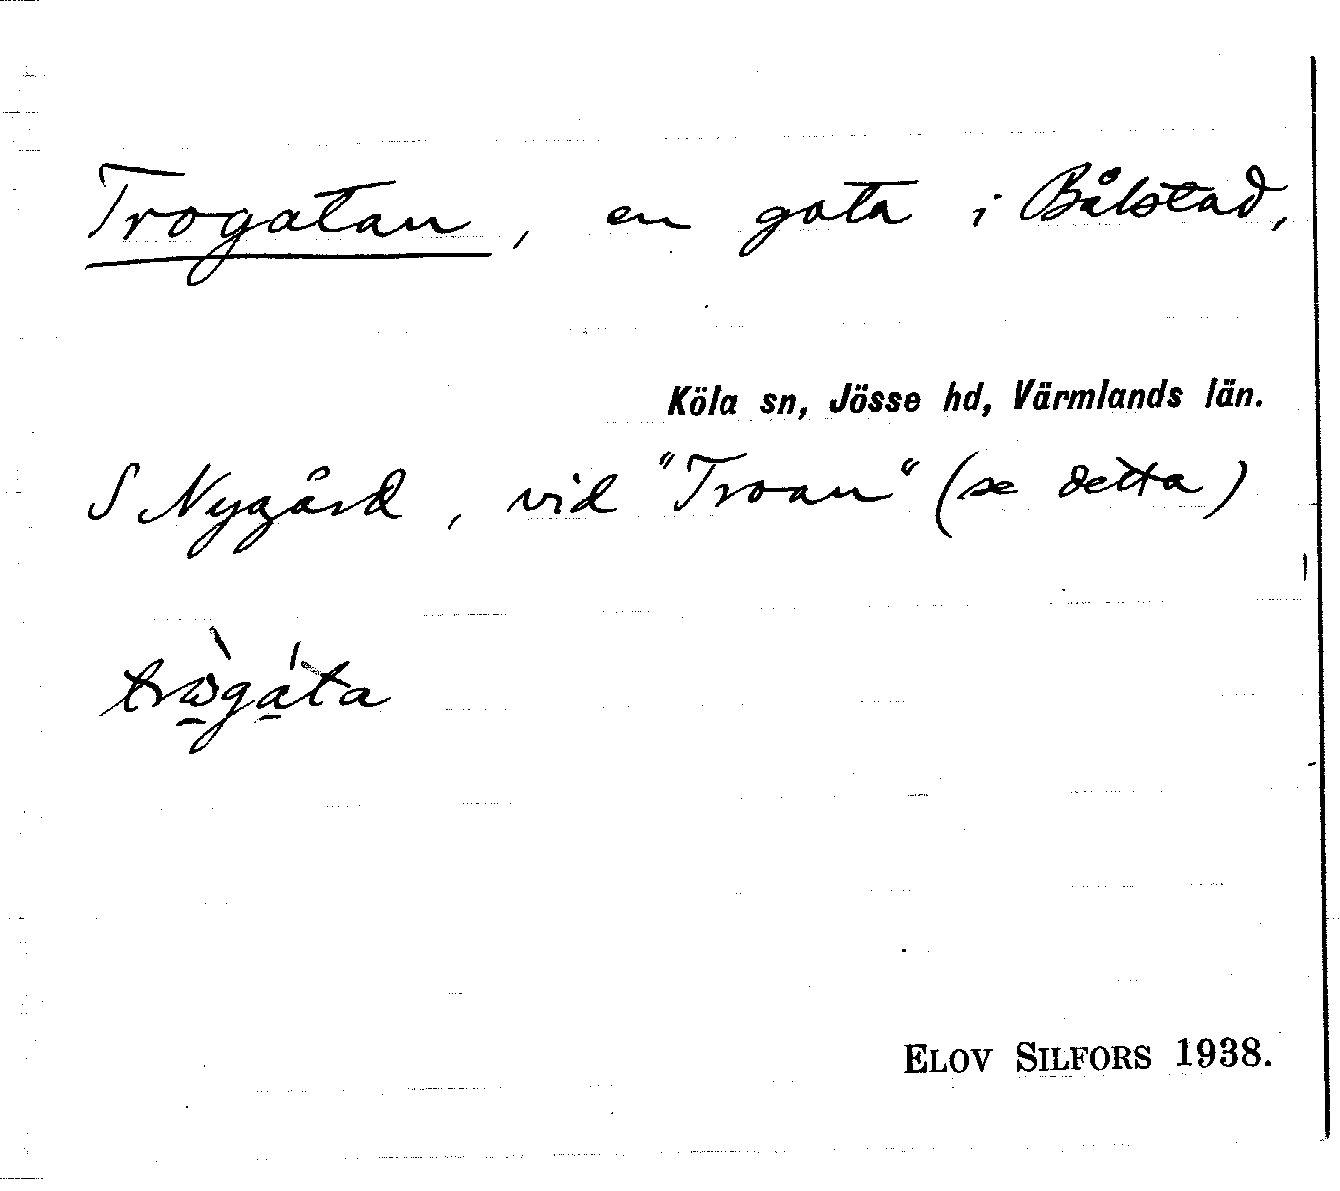 Trogatan, en gata i Bålstad,
Köla sn, Jösse hd, Värmlands län.
S Nygård, vid "Troan" (se detta)
ELOV SILFORS 1938.